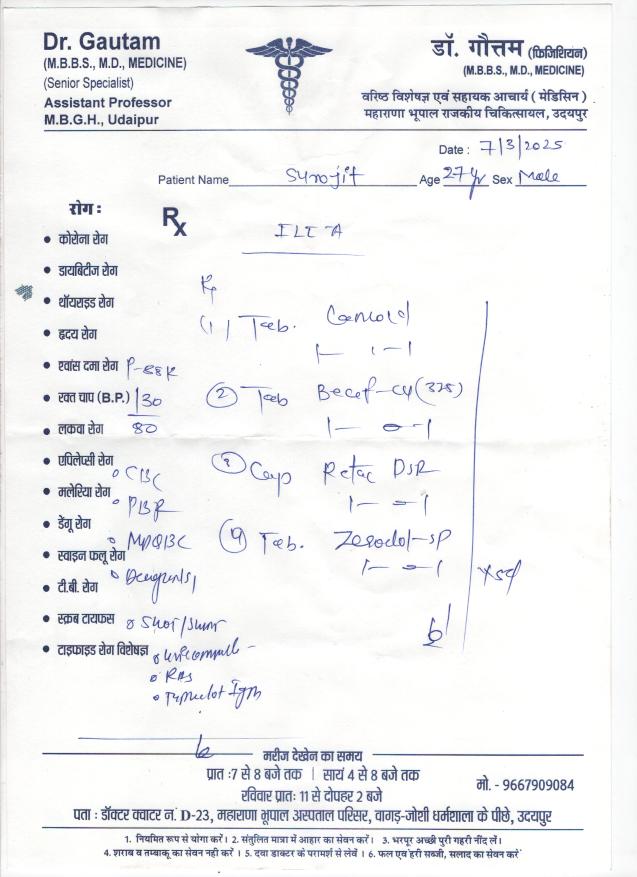 Dr. Gautam
(M.B.B.S., M.D., MEDICINE)
(Senior Specialist)
Assistant Professor
M.B.G.H., Udaipur
डॉ. गौत्तम (फिजिशियन)
(M.B.B.S., M.D., MEDICINE)
वरिष्ठ विशेषज्ञ एवं सहायक आचार्य ( मेडिसिन )
महाराणा भूपाल राजकीय चिकित्सायल, उदयपुर
Date : 7/3/2025
Patient Name Surojit Age 27 yr Sex Male
रोग :
Rx
• कोरोना रोग
• डायबिटीज रोग
• थॉयराइड रोग
(1) Tab.
1 — 1 — 1
• हृदय रोग
• श्वांस दमा रोग P-88R
• रक्त चाप (B.P.) 130
80
② Tab Becef-CV (325)
1 — 0 — 1
• लकवा रोग
• एपिलेप्सी रोग
③ Cap Retac DSR
1 — 0 — 1
CBC
• मलेरिया रोग
PBF
• डेंगू रोग
④ Tab. Zerodol-SP
1 — 0 — 1
x5d
• स्वाइन फलू रोग
• टी.बी. रोग
• स्क्रब टायफस SGOT/SGPT
• टाइफाइड रोग विशेषज्ञ
RBS
मरीज देखेन का समय
प्रात :7 से 8 बजे तक | सायं 4 से 8 बजे तक
रविवार प्रातः 11 से दोपहर 2 बजे
मो. - 9667909084
पता : डॉक्टर क्वाटर नं. D-23, महाराणा भूपाल अस्पताल परिसर, वागड़-जोशी धर्मशाला के पीछे, उदयपुर
1. नियमित रूप से योगा करें। 2. संतुलित मात्रा में आहार का सेवन करें। 3. भरपूर अच्छी पुरी गहरी नींद लें।
4. शराब व तम्बाकू का सेवन नही करें । 5. दवा डाक्टर के परामर्श से लेवें । 6. फल एवं हरी सब्जी, सलाद का सेवन करें